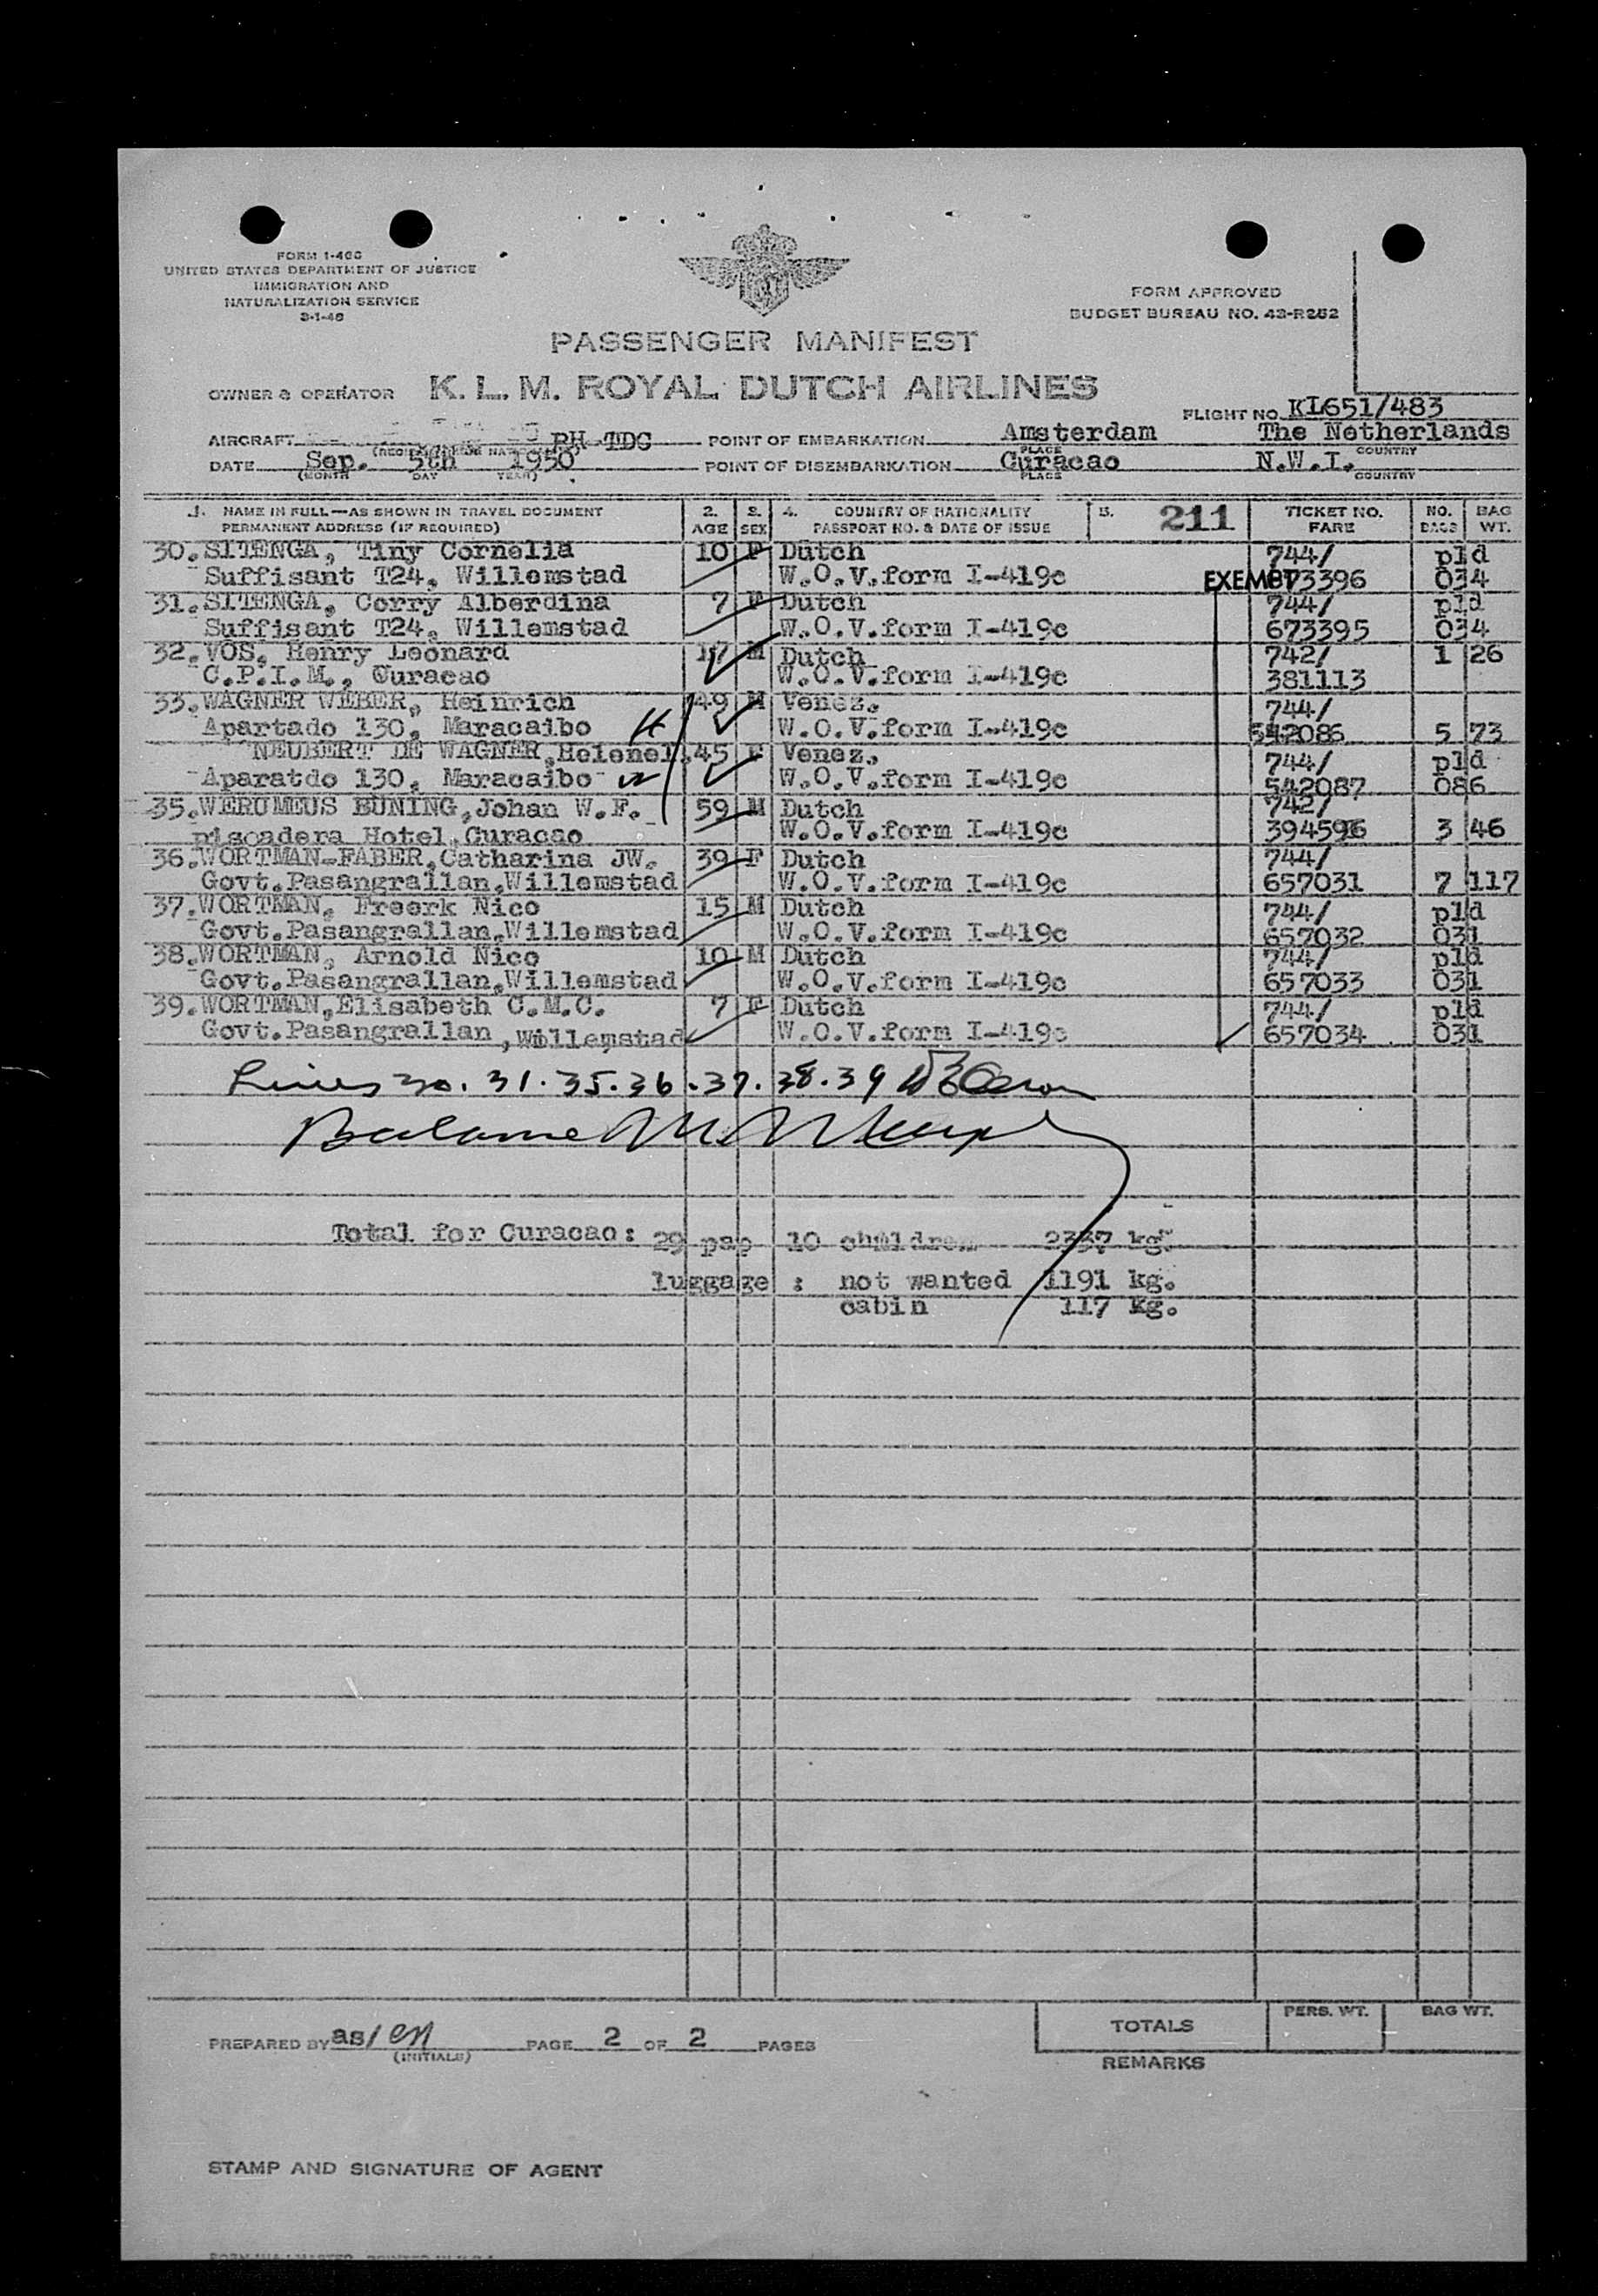 FORM I-466
UNITED STATES DEPARTMENT OF JUSTICE
IMMIGRATION AND
NATURALIZATION SERVICE
3-1-46
FORM APPROVED
BUDGET BUREAU NO. 43-R252
PASSENGER MANIFEST
OWNER & OPERATOR K. L. M. ROYAL DUTCH AIRLINES
FLIGHT NO. KL651/483
AIRCRAFT PH-TDC POINT OF EMBARKATION Amsterdam The Netherlands
PLACE COUNTRY
DATE Sep. 5th 1950 POINT OF DISEMBARKATION Curacao N.W.I.
(MONTH DAY YEAR) PLACE COUNTRY
1. NAME IN FULL—AS SHOWN IN TRAVEL DOCUMENT 2. 3. 4. COUNTRY OF NATIONALITY 5. 211 TICKET NO. NO. BAG
PERMANENT ADDRESS (IF REQUIRED) AGE SEX PASSPORT NO. & DATE OF ISSUE FARE BAGS WT.
30. SITENGA, Tiny Cornelia 10 F Dutch 744/ pld
Suffisant T24, Willemstad W.O.V.form I-419c EXEMPT 673396 034
31. SITENGA, Corry Alberdina 7 F Dutch 744/ pld
Suffisant T24, Willemstad W.O.V.form I-419c 673395 034
32. VOS, Henry Leonard 17 M Dutch 742/ 1 26
C.P.I.M., Curacao W.O.V.form I-419c 381113
33. WAGNER WEBER, Heinrich 49 M Venez. 744/
Apartado 130, Maracaibo W.O.V.form I-419c 542086 5 73
NEUBERT DE WAGNER,Helene 45 F Venez. 744/ pld
Aparatdo 130, Maracaibo W.O.V.form I-419c 542087 086
35. WERUMEUS BUNING,Johan W.F. 59 M Dutch 742/
piscadera Hotel,Curacao W.O.V.form I-419c 394596 3 46
36. WORTMAN-FABER,Catharina JW. 39 F Dutch 744/
Govt.Pasangrallan,Willemstad W.O.V.form I-419c 657031 7 117
37. WORTMAN, Freerk Nico 15 M Dutch 744/ pld
Govt.Pasangrallan,Willemstad W.O.V.form I-419c 657032 031
38. WORTMAN, Arnold Nico 10 M Dutch 744/ pld
Govt.Pasangrallan,Willemstad W.O.V.form I-419c 657033 031
39. WORTMAN,Elisabeth C.M.C. 7 F Dutch 744/ pld
Govt.Pasangrallan ,Willemstad W.O.V.form I-419c 657034 031
Lines 30. 31. 35. 36. 37. 38. 39
Balance
Total for Curacao: 29 pap 10 children 2337 kg.
luggage : not wanted 1191 kg.
cabin 117 kg.
PREPARED BY as/ PAGE 2 OF 2 PAGES
(INITIALS)
TOTALS PERS. WT. BAG WT.
REMARKS
STAMP AND SIGNATURE OF AGENT